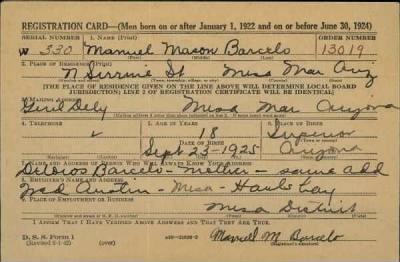 REGISTRATION CARD—(Men born on or after January 1, 1922 and on or before June 30, 1924)
SERIAL NUMBER 1. NAME (Print) ORDER NUMBER
W 330 Manuel Mason Barcelo 13019
2. PLACE OF RESIDENCE (Print)
N Sirrine St Mesa Mar Ariz
(Number and street) (Town, township, village, or city) (County) (State)
[THE PLACE OF RESIDENCE GIVEN ON THE LINE ABOVE WILL DETERMINE LOCAL BOARD
JURISDICTION; LINE 2 OF REGISTRATION CERTIFICATE WILL BE IDENTICAL]
3. MAILING ADDRESS
Genl Dely Mesa Mar Arizona
4. TELEPHONE 5. AGE IN YEARS 6. PLACE OF BIRTH
18 Superior
DATE OF BIRTH
Sept 23-1925 Arizona
7. NAME AND ADDRESS OF PERSON WHO WILL ALWAYS KNOW YOUR ADDRESS
Delores Barcelo - mother - same add
8. EMPLOYER'S NAME AND ADDRESS
Austin - Mesa - Hauls Hay
9. PLACE OF EMPLOYMENT OR BUSINESS
Mesa District
I AFFIRM THAT I HAVE VERIFIED ABOVE ANSWERS AND THAT THEY ARE TRUE.
D. S. S. Form 1
(Revised 6-1-42) (over) Manuel M. Barcelo
(Registrant's signature)